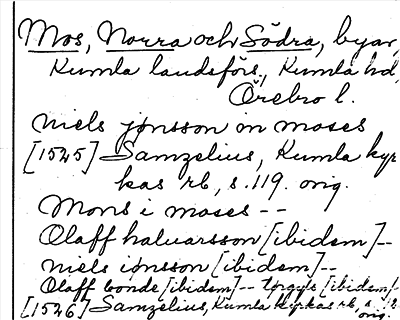 Mos, Norra och Södra, byar,
Kumla landsförs., Kumla hd,
Örebro l.
Niels jönsson in moses
[1525] Samzelius, Kumla kyr
kas rb, s. 119. orig.
Mons i moses --
Olaff haluarsson [ibidem]--
Niels iönsson [ibidem]--
Olaff bonde [ibidem]-- [ibidem]-
[1526] Samzelius, Kumla kyrkas rb, s.
orig.